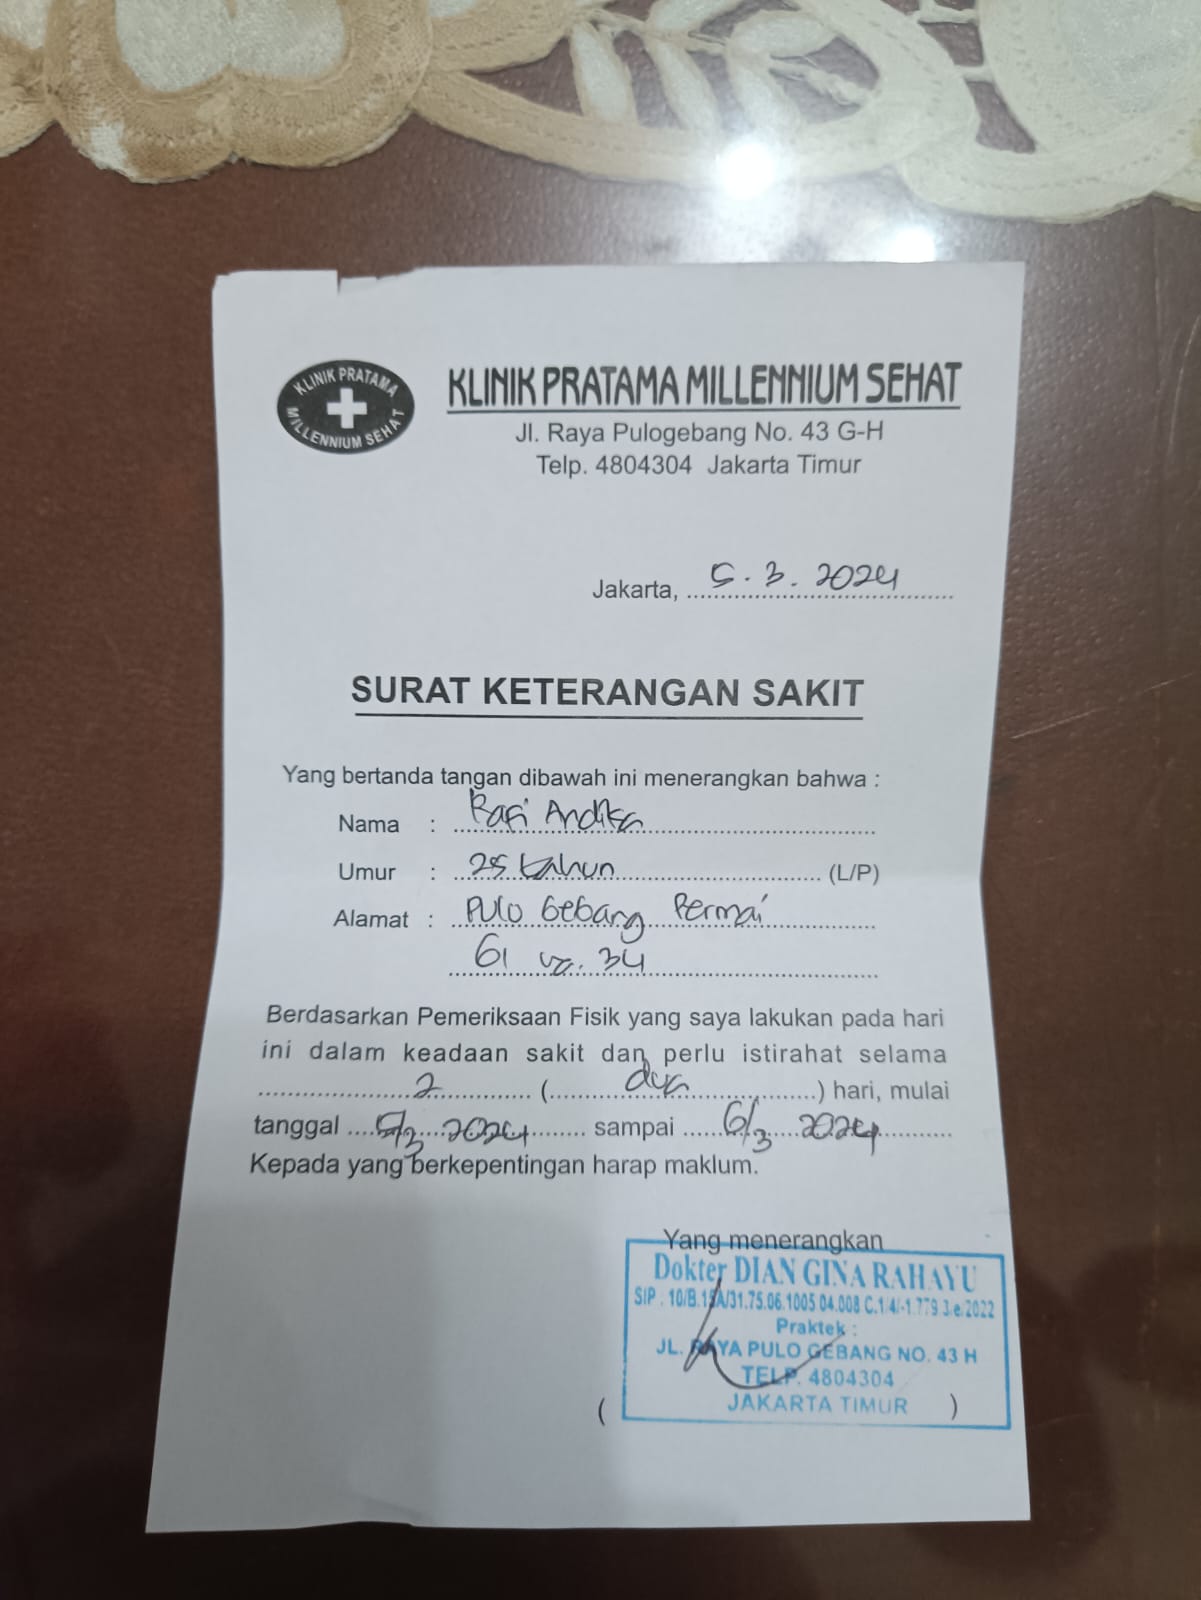 KLINIK PRATAMA
MILLENNIUM SEHAT
KLINIK PRATAMA MILLENNIUM SEHAT
Jl. Raya Pulogebang No. 43 G-H
Telp. 4804304 Jakarta Timur
Jakarta, 5.3.2024
SURAT KETERANGAN SAKIT
Yang bertanda tangan dibawah ini menerangkan bahwa :
Nama : Rafi Andika
Umur : 25 tahun (L/P)
Alamat : Pulo Gebang Permai
34
Berdasarkan Pemeriksaan Fisik yang saya lakukan pada hari
ini dalam keadaan sakit dan perlu istirahat selama
2 (dua) hari, mulai
tanggal 5/3 2024 sampai 6/3 2024
Kepada yang berkepentingan harap maklum.
Yang menerangkan
Dokter DIAN GINA RAHAYU
SIP : 10/B.15A/31.75.06.1005.04.008
Praktek :
JL. RAYA PULO GEBANG NO. 43 H
TELP. 4804304
( JAKARTA TIMUR )